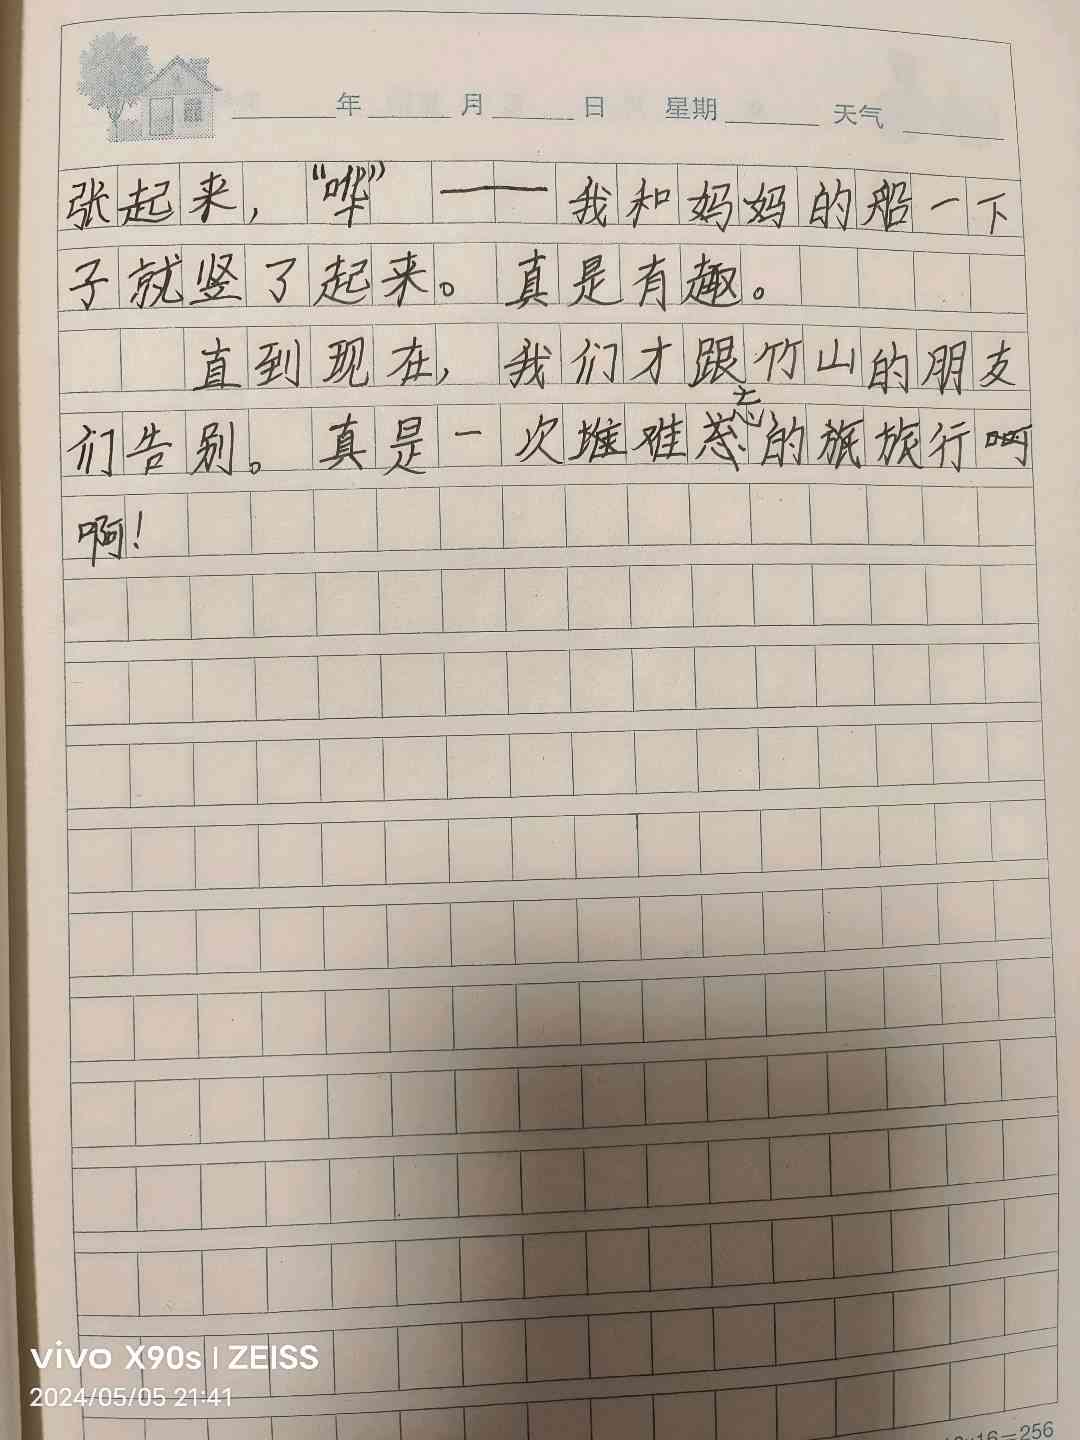 年 月 日 星期 天气
张起来，“哗”——我和妈妈的船一下
子就竖了起来。真是有趣。
直到现在，我们才跟竹山的朋友
们告别。真是一次难忘的旅行
啊！
vivo X90s | ZEISS
2024/05/05 21:41
16=256